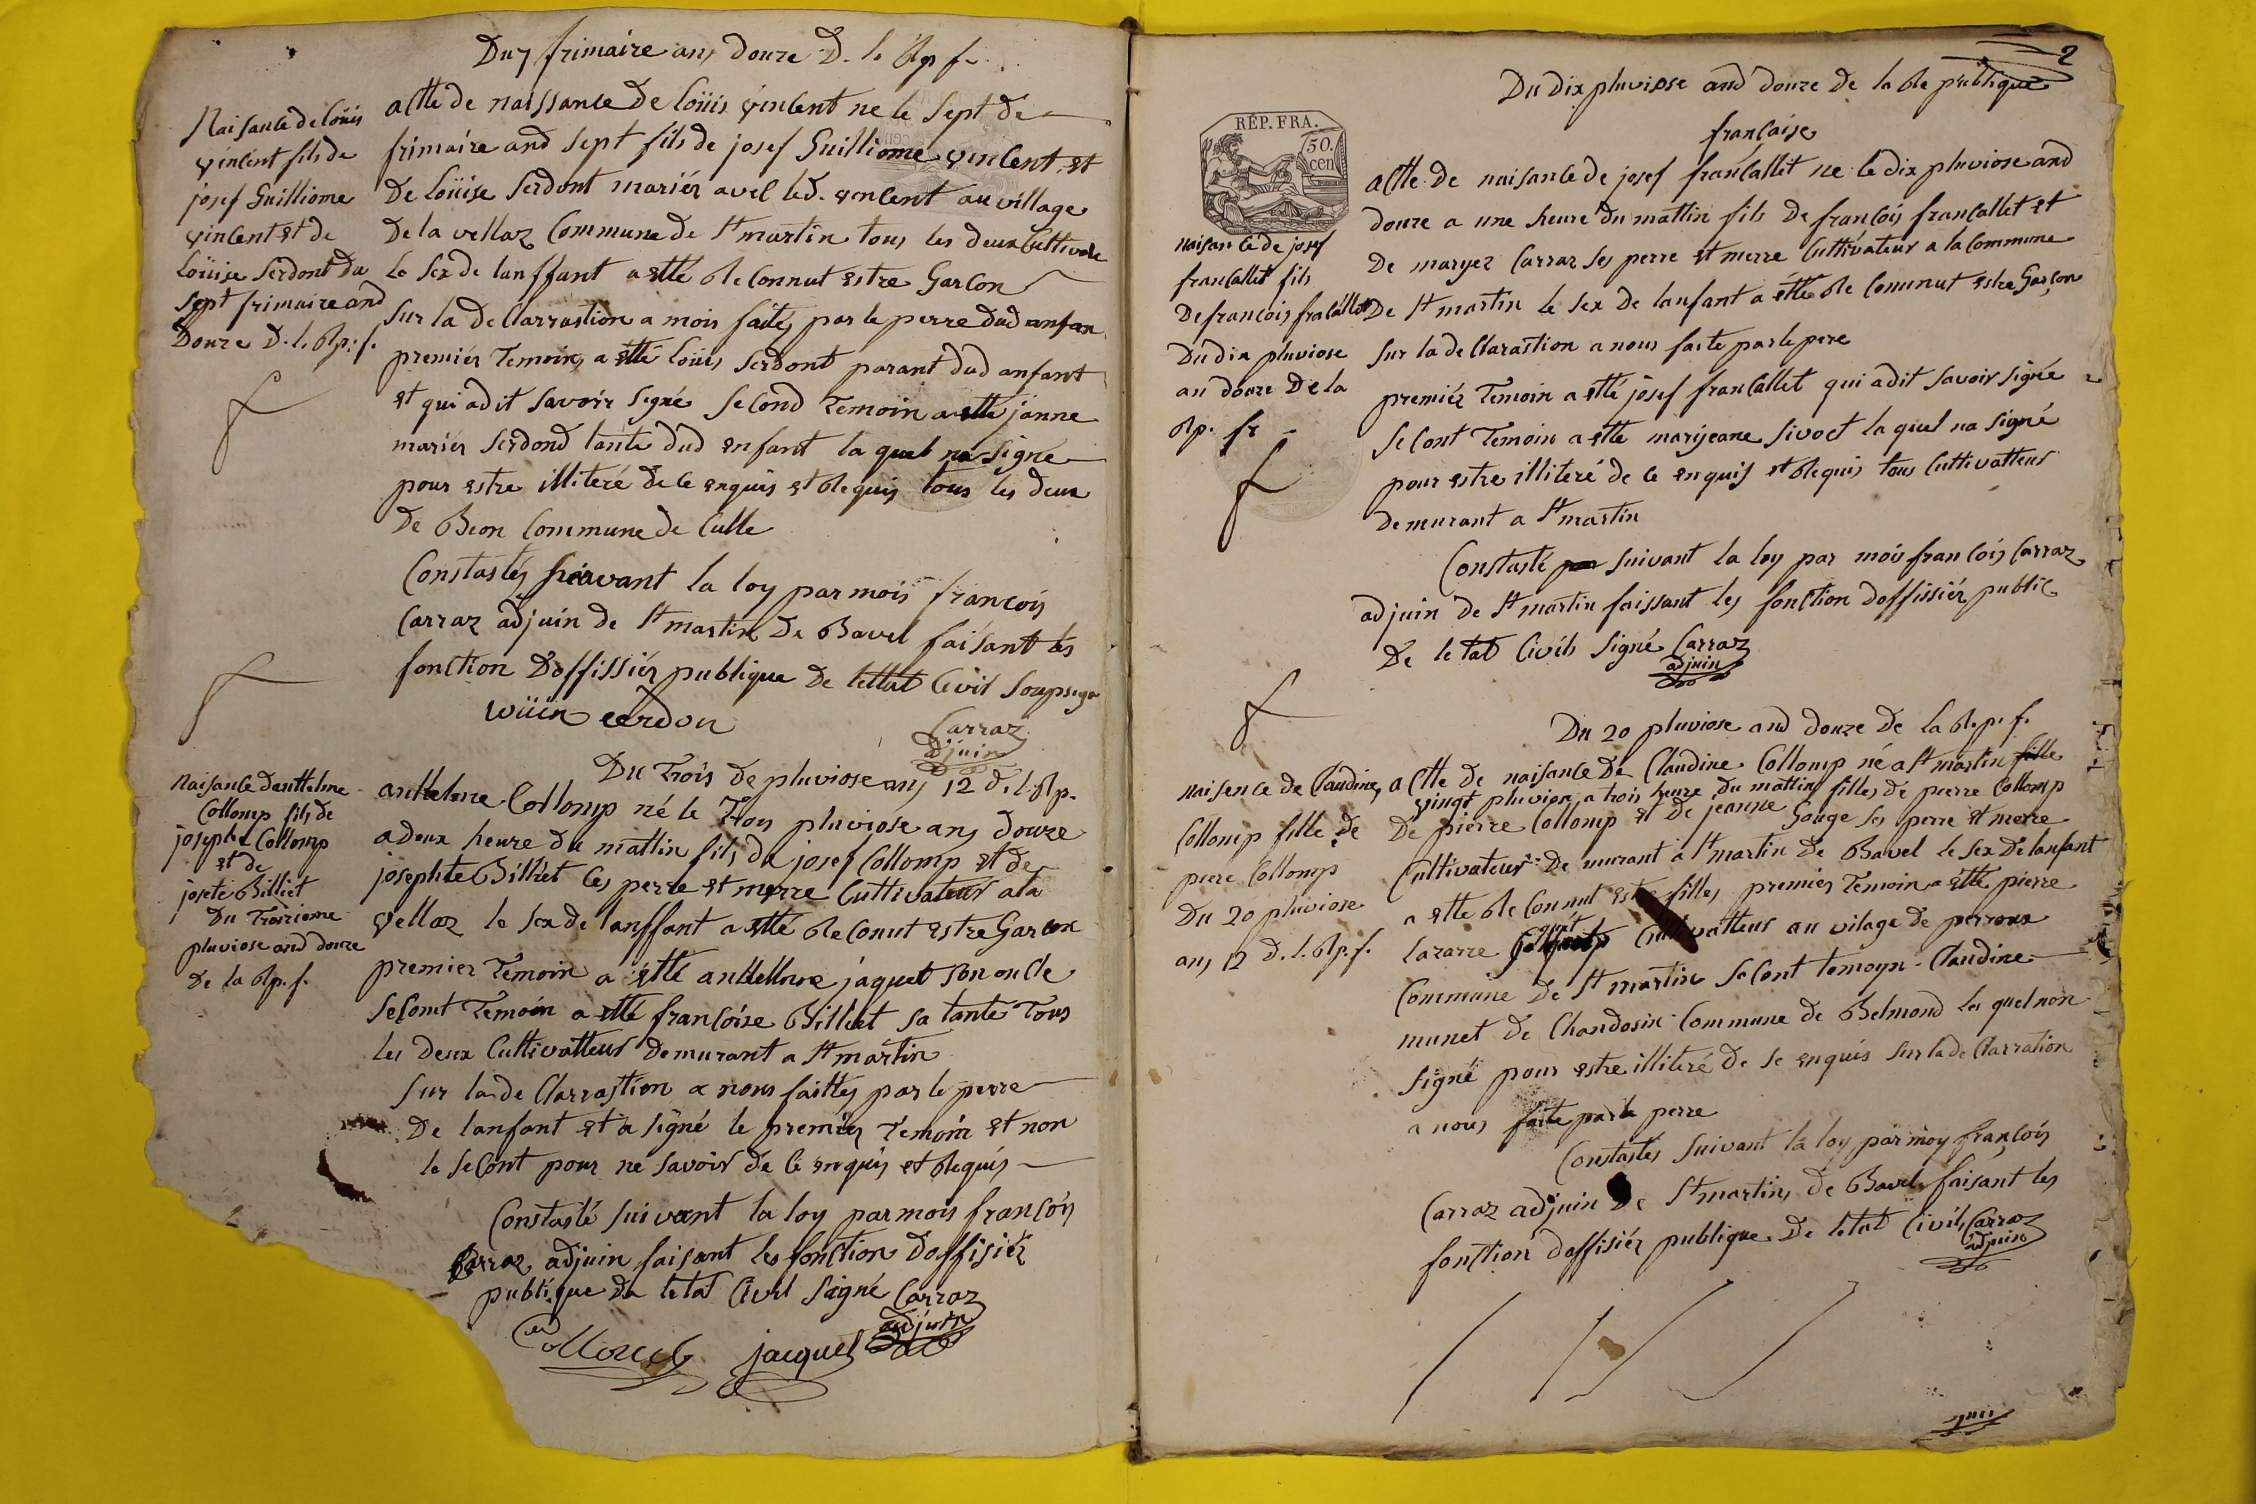 Du 7 frimaire an douze D. l. Rp f.
Naisance de loüis
vincent fils de
josef Guilliome
vincent et de
loüise serdont du
sept frimaire and
Douze D. l. Rp. f.
actte de naissance de loüis vincent ne le sept de
frimaire and sept fils de josef Guilliome vincent et
De loüise serdont mariér avec led. vincent au village
De la vellaz Commune de St martin tous les deux Cultivate
le sex de lanffant a etté Reconnut estre Garcon
sur la de Clarrastion a mois faites par le perre dud anfan
premiér Temoins a etté loüis serdont parant dud anfant
et qui adit savoir segné second Temoin a etté janne
mariér serdond tante dud enfant la quel na signé
pour estre illiteré de ce enquis et Requis tous les deux
De Beon Commune de Culle
Constastés suivant la loy par mois francois
Carraz adjuin de St martin De Bavel faisant les
fonction Doffissiér publique De lettat Civil soupsegn
wüin cerdon
Carraz
adjuin
Du Trois de pluviose an 12 d. l. Rp.
Naisance Danthelme
Collomp fils de
josephe Collomp
et de
josete Billiet
Du Troisieme
pluviose and douze
De la Rp. f.
anthelme Collomp né le Trois pluviose an douze
a deux heure du mattin fils de josef Collomp et de
josephte Billiet les perre et merre Cultivateur a la
vellaz le sex de lanffant a etté Reconut estre Garcon
premier Temoin a etté anthelme jaquet son oncle
second Temoin a etté francoise Billiet sa tante Tous
les deux Cultivatteur Demurant a St martin
sur la de Clarrastion a nous faittes par le perre
De lanfant et a signé le premiér Temoin et non
le second pour ne savoir de ce enquis et Requis
Constasté suivant la loy par mois francois
Carraz adjuin faisant les fonction Doffisiér
publique De letat Civil signé Carraz
adjuin
Collomb jacquet
2
Du Dix pluviose and douze de la Republique
francaise
RÉP. FRA.
50.
cen
Naisance de josef
francallet fils
De francois fracallet
Du dix pluviose
an douze De la
Rp. fr
actte de naisance de josef francallet ne le dix pluviose and
douze a une heure du mattin fils De francois francallet et
De maryez Carraz ses perre et merre Cultivateur a la Commune
De St martin le sex de lanfant a étté Re Connut estre Garçon
sur la de Clarastion a nous faite par le pere
premiér Temoin a etté josef francallet qui adit savoir signé
se Cont Temoin a etté marijeane sivoct la quel na signé
pour estre illiteré de ce enquis et Requis tous Cultivatteur
demurant a St martin
Constasté suivant la loy par mois francois Carraz
adjuin de St martin faissant les fonction doffissiér public
De le tat Civils signé Carraz
adjuin
Du 20 pluviose and douze de la Rp. f.
Naisence de Claudine
Collomp fille de
piere Collomp
Du 20 pluviose
an 12 D. l. Rp. f.
actte de naisance De Claudine Collomp né a St martin fille
vingt pluviose a trois heure du mattin filles de pierre Collomp
De pierre Collomp et De jeanne Gouge ses perre et merre
Cultivateur De murant a St martin De Bavel le sex De lanfant
a ette Re Connut estre filles premiér Temoin a etté pierre
lazarre Cultivatteur au vilage de perroux
Commune de St martin se Cont temoyn Claudine
munet de Chandosin Commune de Belmond les quel non
signé pour estre illiteré de se enquis sur la de Clarration
a nous faite par le perre
Constastés suivant la loy par moy françois
Carraz adjuin De St martin de Bavel faisant les
fonction doffisiér publique De letat Civils Carraz
adjuin